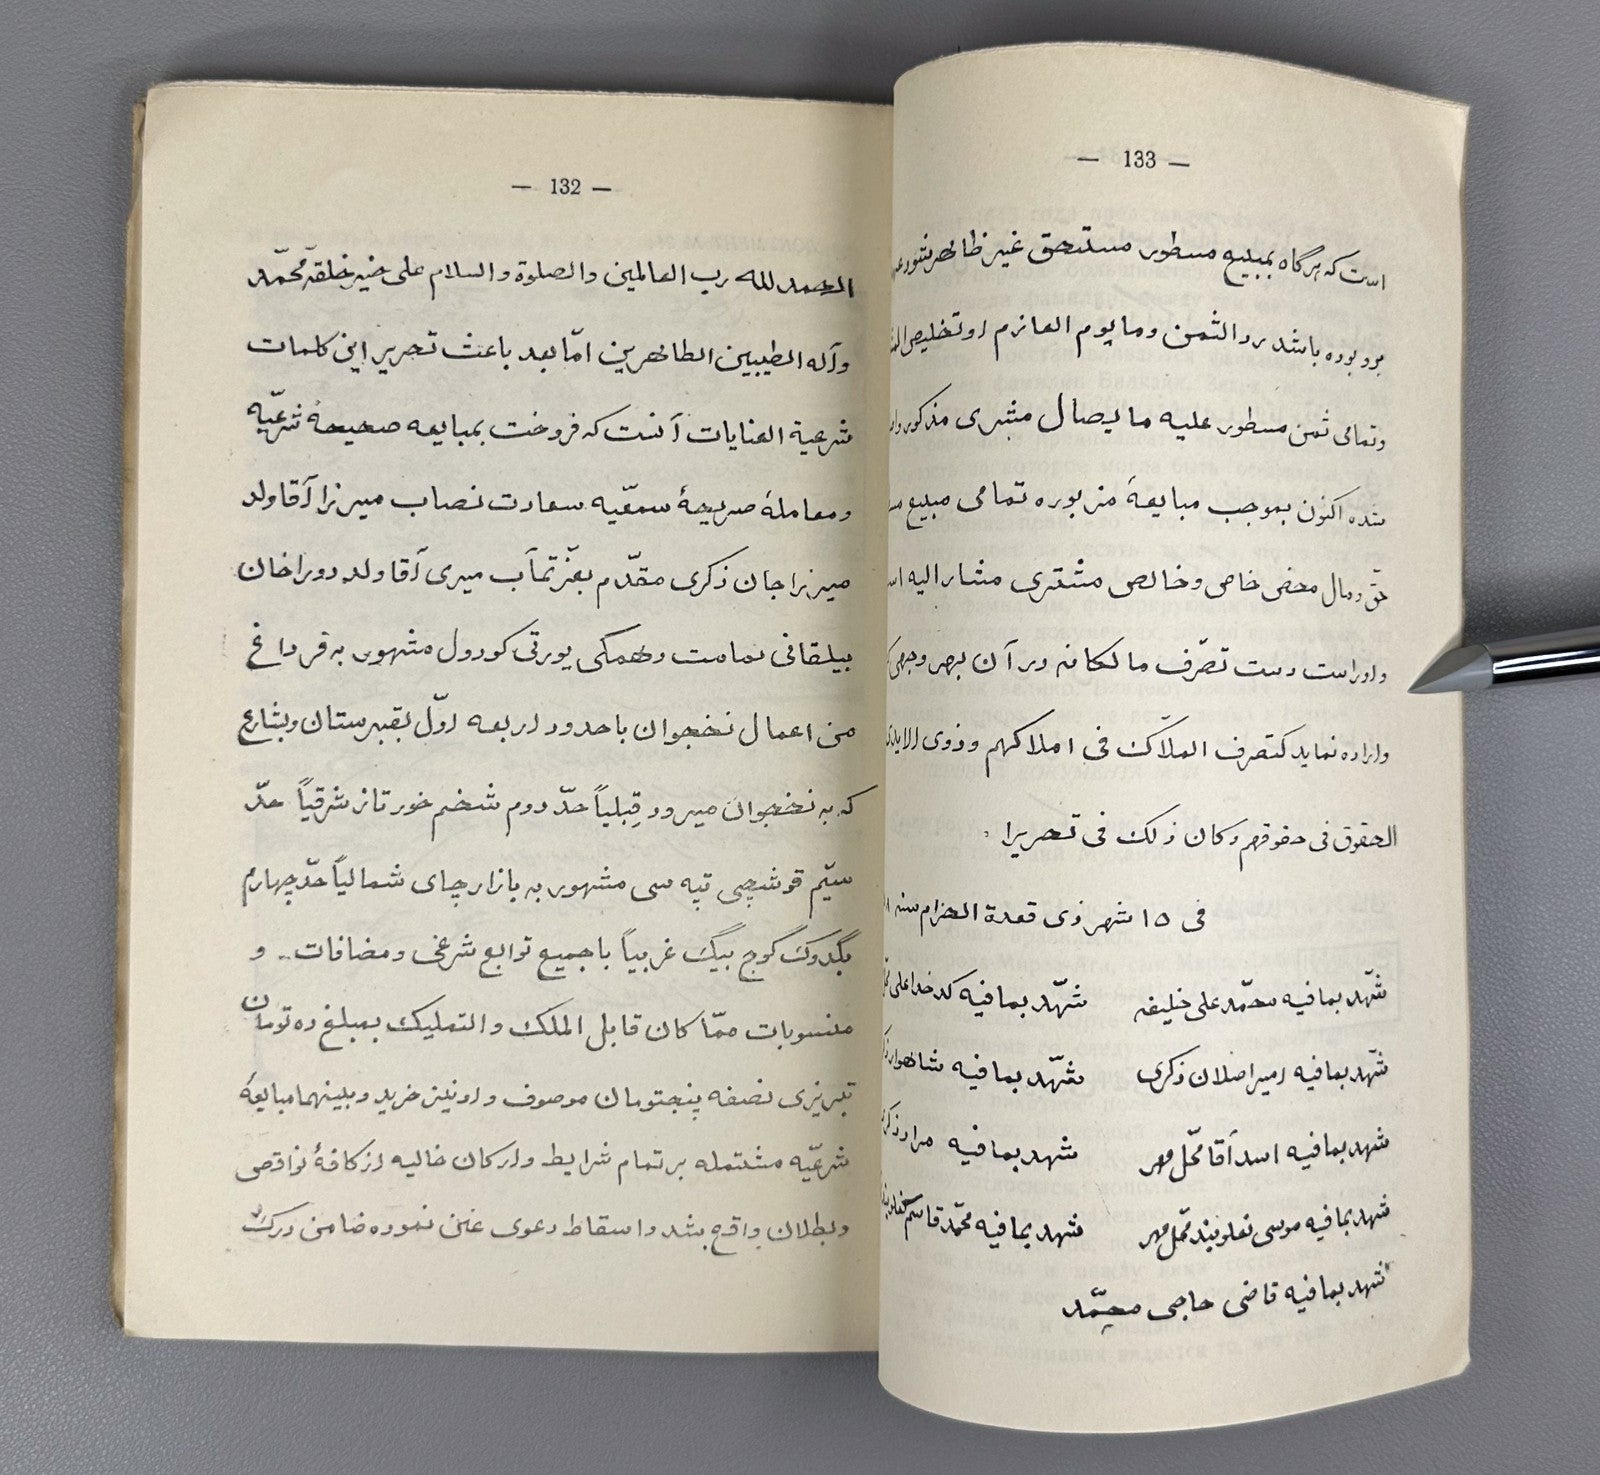 — 132 —
الحمد لله رب العالمين والصلوة والسلام على خير خلقه محمّد
وآله الطيبين الطاهرين امّا بعد باعث تحرير اين كلمات
شرعية الغنايات آنست كه فروخت بمبايعه صحيحهٔ شرعيّه
ومعاملهٔ صريحهٔ سمعّيه سعادت نصاب ميرزا آقا ولد
ميرزا جان ذكرى مقدّم بعزّتمآب ميرى آقا ولد دورا خان
بيلقانى تمامت وهمكى يورتى كورول مشهور به قرداغ
من اعمال نخجوان با حدود اربعه اوّل بقبرستان وبشارع
كه به نخجوان ميرود قبلياً حدّ دوم شخم خورتاز شرقياً حدّ
سيّم قوشچى تپه سى مشهور به بازارچاى شمالياً حدّ چهارم
بگدوك گوج بيگ غربياً با جميع توابع شرعى ومضافات و
منسوبات ممّا كان قابل الملك والتمليك بمبلغ ده تومان
تبريزى نصفه پنجتومان موصوف و اونيز خريد وبينهما مبايعهٔ
شرعيّه مشتمله بر تمام شرايط واركان خاليه از كافهٔ نواقص
وبطلان واقع شد واسقاط دعوى غبن نموده ضامن درك
— 133 —
است كه هرگاه بمبيع مسطور مستحق غير ظاهر شود
برد بوده باشد برد الثمن وما يوم الغانزم او تخليص
وتمامى ثمن مسطور عليه ما ليصال مشترى مذكور
شده اكنون بموجب مبايعهٔ مزبوره تمامى مبيع
حقّ ومال محض خاص وخالص مشترى مشار اليه
واوراست دست تصّرف مالكانه در آن بهر وجهى
واراده نمايد كتصرف الملاّك فى املاكهم وذوى
الحقوق فى حقوقهم وكان ذلك فى تحريرا
فى ١٥ شهر ذى قعدة الحرام سنه
شهّد بما فيه محمّد على خليفه شهّد بما فيه كدخدا على
شهّد بما فيه امير اصلان ذكرى شهّد بما فيه شاهوار
شهد بما فيه اسد آقا محّل مهر شهد بما فيه مراد
شهد بما فيه موسى نعلوبند محّل مهر شهد بما فيه محمّد قاسم
شهد بما فيه قاضى حاجى محمّد